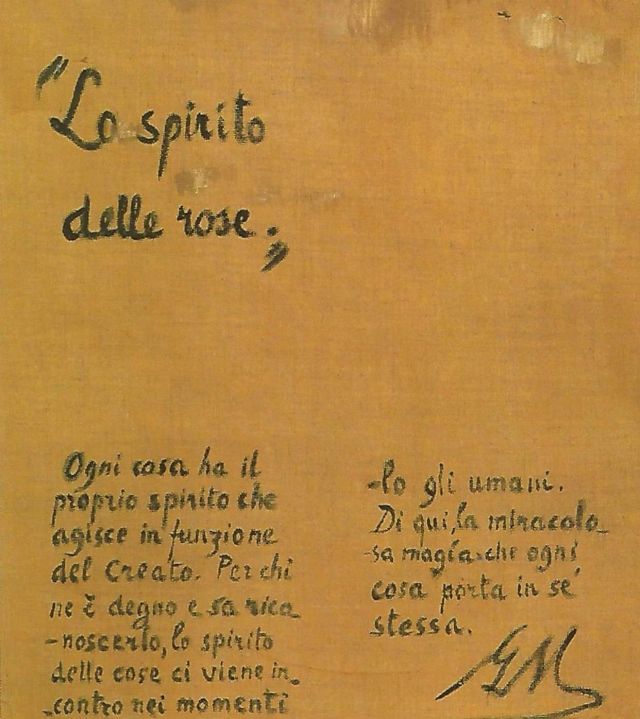 "Lo spirito
delle rose."
Ogni cosa ha il
proprio spirito che
agisce in funzione
del Creato. Per chi
ne è degno e sa rica
-noscerlo, lo spirito
delle cose ci viene in-
-contro nei momenti
-lo gli umani.
Di qui, la miracolo
-sa magía che ogni
cosa porta in sé
stessa.
GM